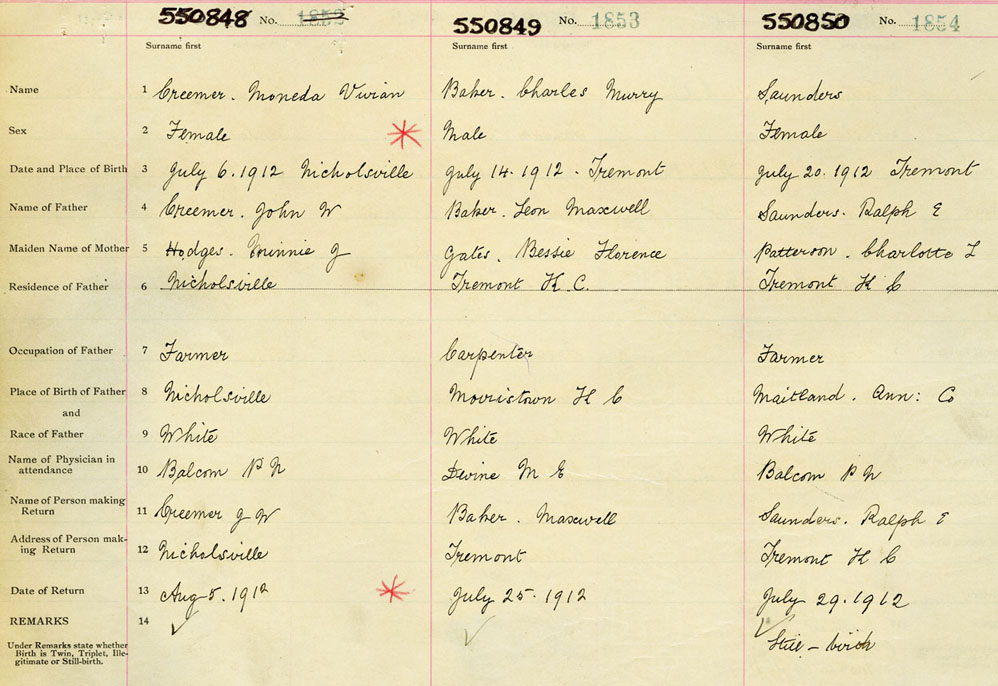 550848 No. 1852 550849 No. 1853 550850 No. 1854
Surname first Surname first Surname first
Name 1 Creemer. Moneda Vivian Baker. Charles Murry Saunders
Sex 2 Female Male Female
Date and Place of Birth 3 July 6.1912 Nicholsville July 14.1912 - Tremont July 20.1912 Tremont
Name of Father 4 Creemer. John W Baker. Leon Maxwell Saunders. Ralph E
Maiden Name of Mother 5 Hodges. Minnie J Gates. Bessie Florence Patterson. Charlotte L
Residence of Father 6 Nicholsville Tremont K C. Tremont K C
Occupation of Father 7 Farmer Carpenter Farmer
Place of Birth of Father 8 Nicholsville Morristown K C Maitland. Ann: Co
and
Race of Father 9 White White White
Name of Physician in
attendance 10 Balcom P N Devine M E Balcom P N
Name of Person making
Return 11 Creemer J W Baker. Maxwell Saunders. Ralph E
Address of Person mak-
ing Return 12 Nicholsville Tremont Tremont K C
Date of Return 13 Aug 5.1912 July 25.1912 July 29.1912
REMARKS 14
Under Remarks state whether
Birth is Twin, Triplet, Ille-
gitimate or Still-birth.
Still - birth